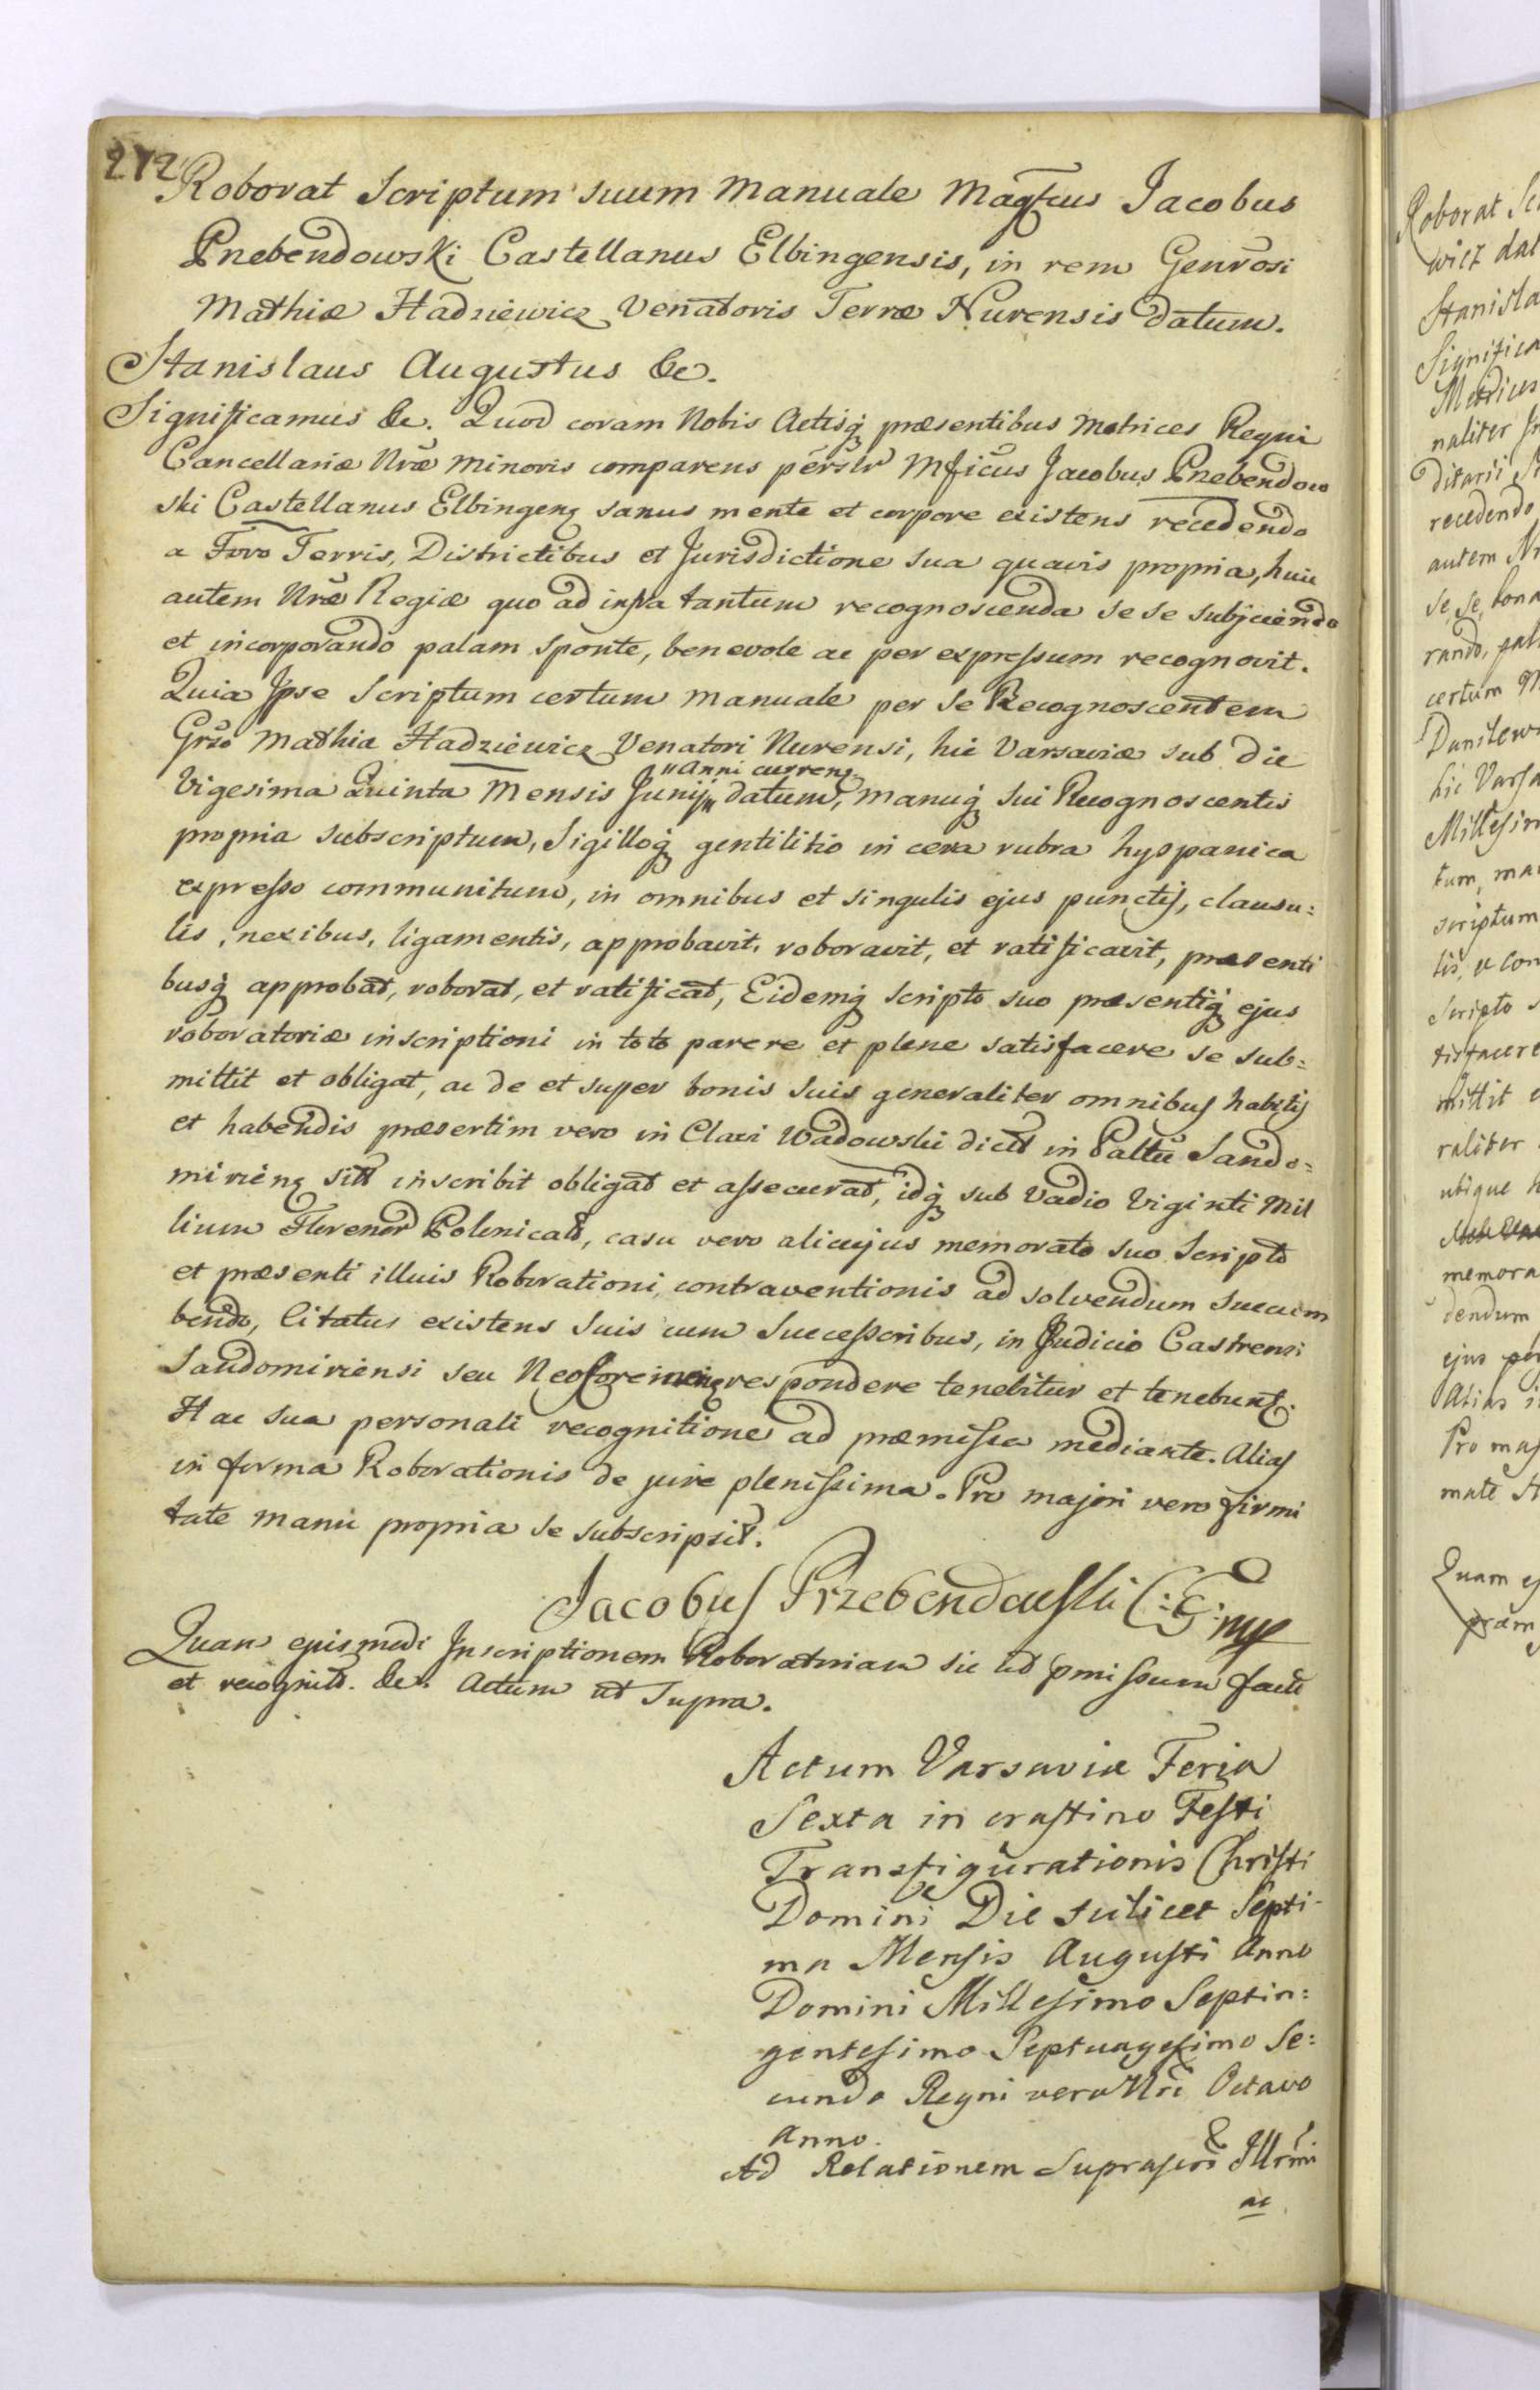 212
Roborat Scriptum suum Manuale Magfcus Jacobus
Przebendowski Castellanus Elbingensis, in rem Genrosi
Mathiæ Hadziewicz Venatoris Terræ Nurensis datum.
Stanislaus Augustus &c.
Significamus &c. Quod coram Nobis Actisq̃ præsentibus Metrices Regni
Cancellariæ Nræ Minoris comparens persLr Mficus Jacobus Przebendow
ski Castellanus Elbingenꝫ sanus mente et corpore existens recedendo
a Foro Terris, Districtibus et Jurisdictione sua quavis propria, huic
autem Nræ Regiæ quo ad infra tantum recognoscenda se se subjciendo
et incorporando palam sponte, benevole ac per expressum recognovit.
Quia Ipse Scriptum certum Manuale per se Recognoscentem
Grso Mathia Hadziewicz Venatori Nurensi, hic Varsaviæ sub die
"Anni currenꝫ
Vigesima Quinta Mensis Junij " datum, manuq̃ sui Recognoscentis
propria subscriptum, Sigilloq̃ gentilitio in cera rubra hyspanica
expresso communitum, in omnibus et singulis ejus punctis, clausu=
lis, nexibus, ligamentis, approbavit, roboravit, et ratificavit, præsenti
busq̃ approbat, roborat, et ratificat, Eidemq̃ scripto suo præsentiq̃ ejus
roboratoriæ inscriptioni in toto parere et plene satisfacere se sub=
mittit et obligat, ac de et super bonis suis generaliter omnibus habitis
et habendis præsertim vero in Clavi Wadowski dict in Paltu Sando=
mirienꝫ sitt inscribit obligat et assecurat, idq̃ sub Vadio Viginti Mil
lium Florenor Polonical, casu vero alicujus memorato suo Scripto
et præsenti illius Roborationi, contraventionis ad solvendum succum
bendo, Citatus existens suis cum Successoribus, in Judicio Castrensi
Sandomiriensi seu respondere tenebitur et tenebunt.
Hac sua personali recognitione ad præmissa mediante. Alias
in forma Roborationis de jure plenissima. Pro majori vero firmi
tate manu propria se subscripsit.
Jacobus Przebendowski C: E: mp
Quam ejusmodi Inscriptionem Roboratoriam sic ut pmissum fact
et recognit. &c. Actum ut Supra.
Actum Varsaviæ Feria
Sexta in crastino Festi
Transfigurationis Christi
Domini Die scilicet Septi-
ma Mensis Augusti Anno
Domini Millesimo Septin=
gentesimo Septuagesimo Se=
cundo Regni vero Nri Octavo
Anno.
Ad Relationem Suprascri Illrmi
ac
Roborat Sc
wicz dat
Stanisla
Significa
Metrices
naliter
ditarii
recedendo
autem Nr
se, se, bona
rando, pal
certum M
Danilew
hic Varsa
Millesim
tum, ma
scriptum
lis, et con
Scripto s
tisfacere
mittit e
raliter
ubique h
memora
dendum
ejus per
Alias i
Pro maj
mate
Quam ej